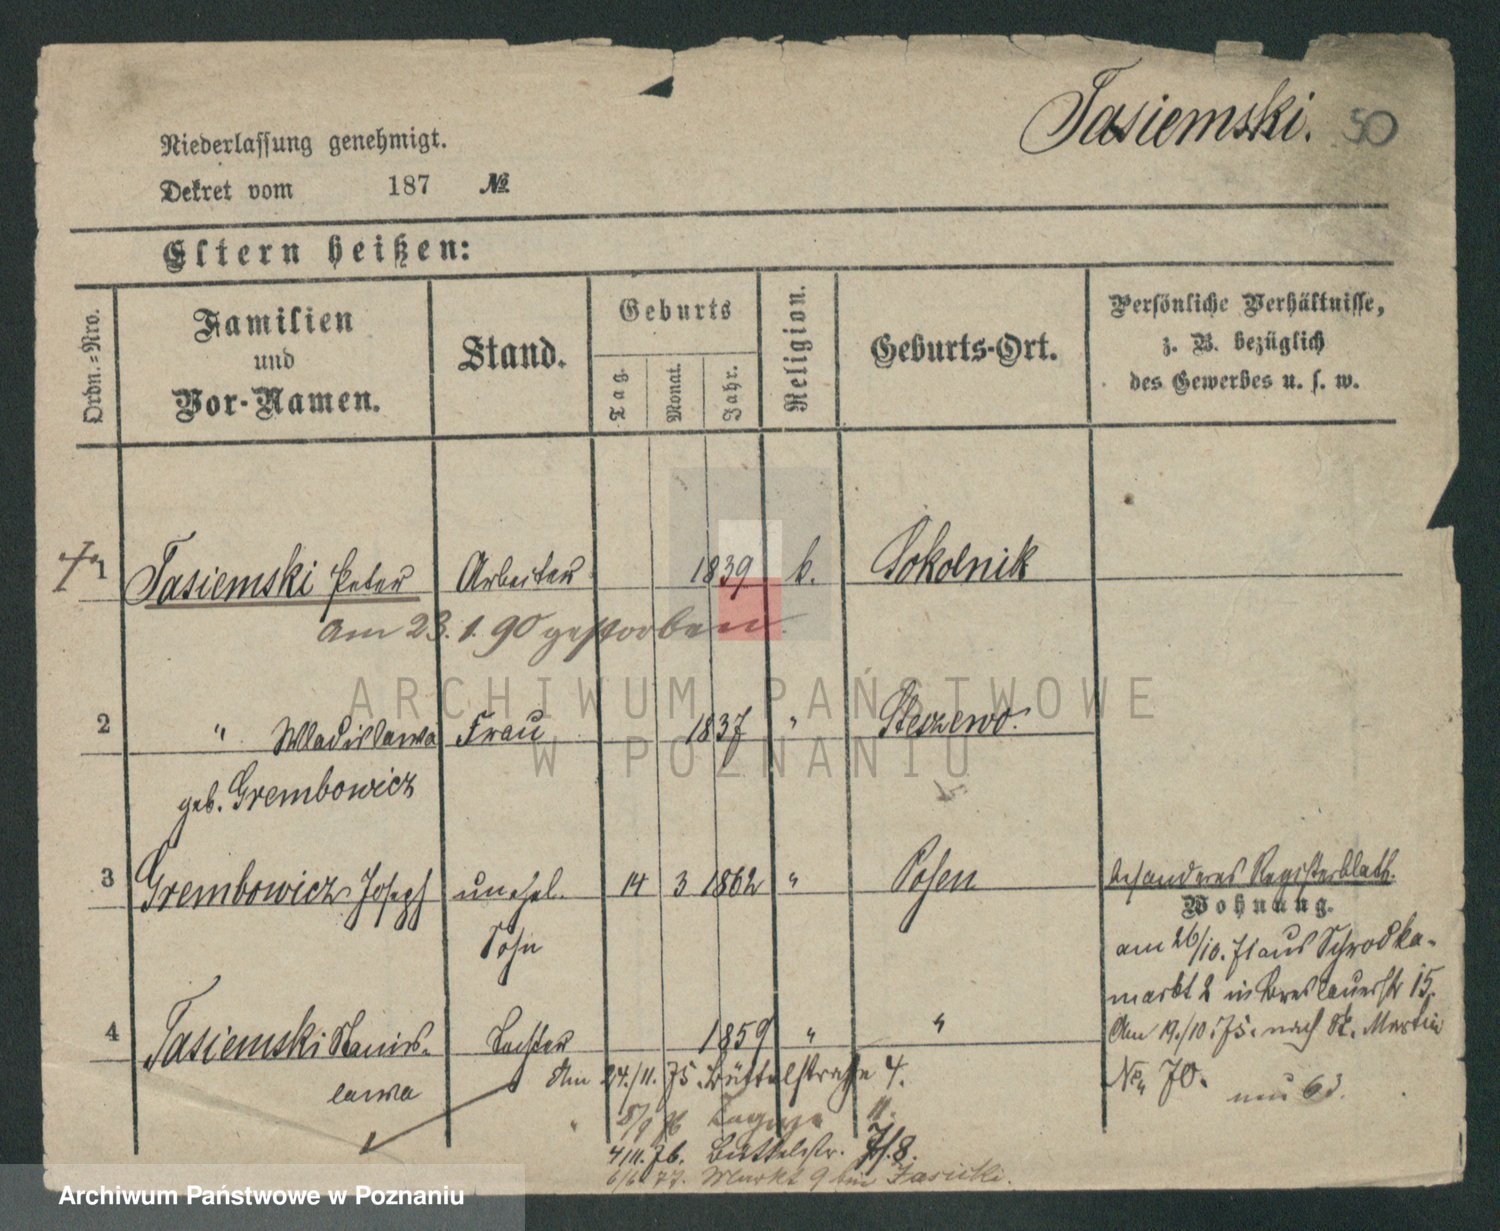 Tasiemski. 50
Niederlassung genehmigt.
Dekret vom 187 №
Eltern heißen:
Ordn.=Nro.
Familien
und
Vor-Namen.
Stand.
Geburts
Tag.
Monat.
Jahr.
Religion.
Geburts-Ort.
Persönliche Verhältnisse,
z. B. bezüglich
des Gewerbes u. s. w.
1 Tasiemski Peter Arbeiter 1839 k. Sokolnik
am 23.1.90 gestorben.
ARCHIWUM PAŃSTWOWE
W POZNANIU
2 " Wladislawa Frau 1837 " Steszewo.
geb. Grembowicz
3 Grembowicz Joseph unehel. 14 3 1862 " Posen besonderes Registerblatt.
Sohn
Wohnung.
am 26/10. 71 aus Schrodka-
markt 2 in Breslauerstr 15.
4 Tasiemski Stanis- Tochter 1859 " " Am 19./10.75. nach St. Martin
lawa
No. 70. neu 63.
Am 24./11. 75 Büttelstraße 4.
" 11.
4/11.76. Büttelstr. 7/8.
6/6 77. Markt 9 bei
Archiwum Państwowe w Poznaniu